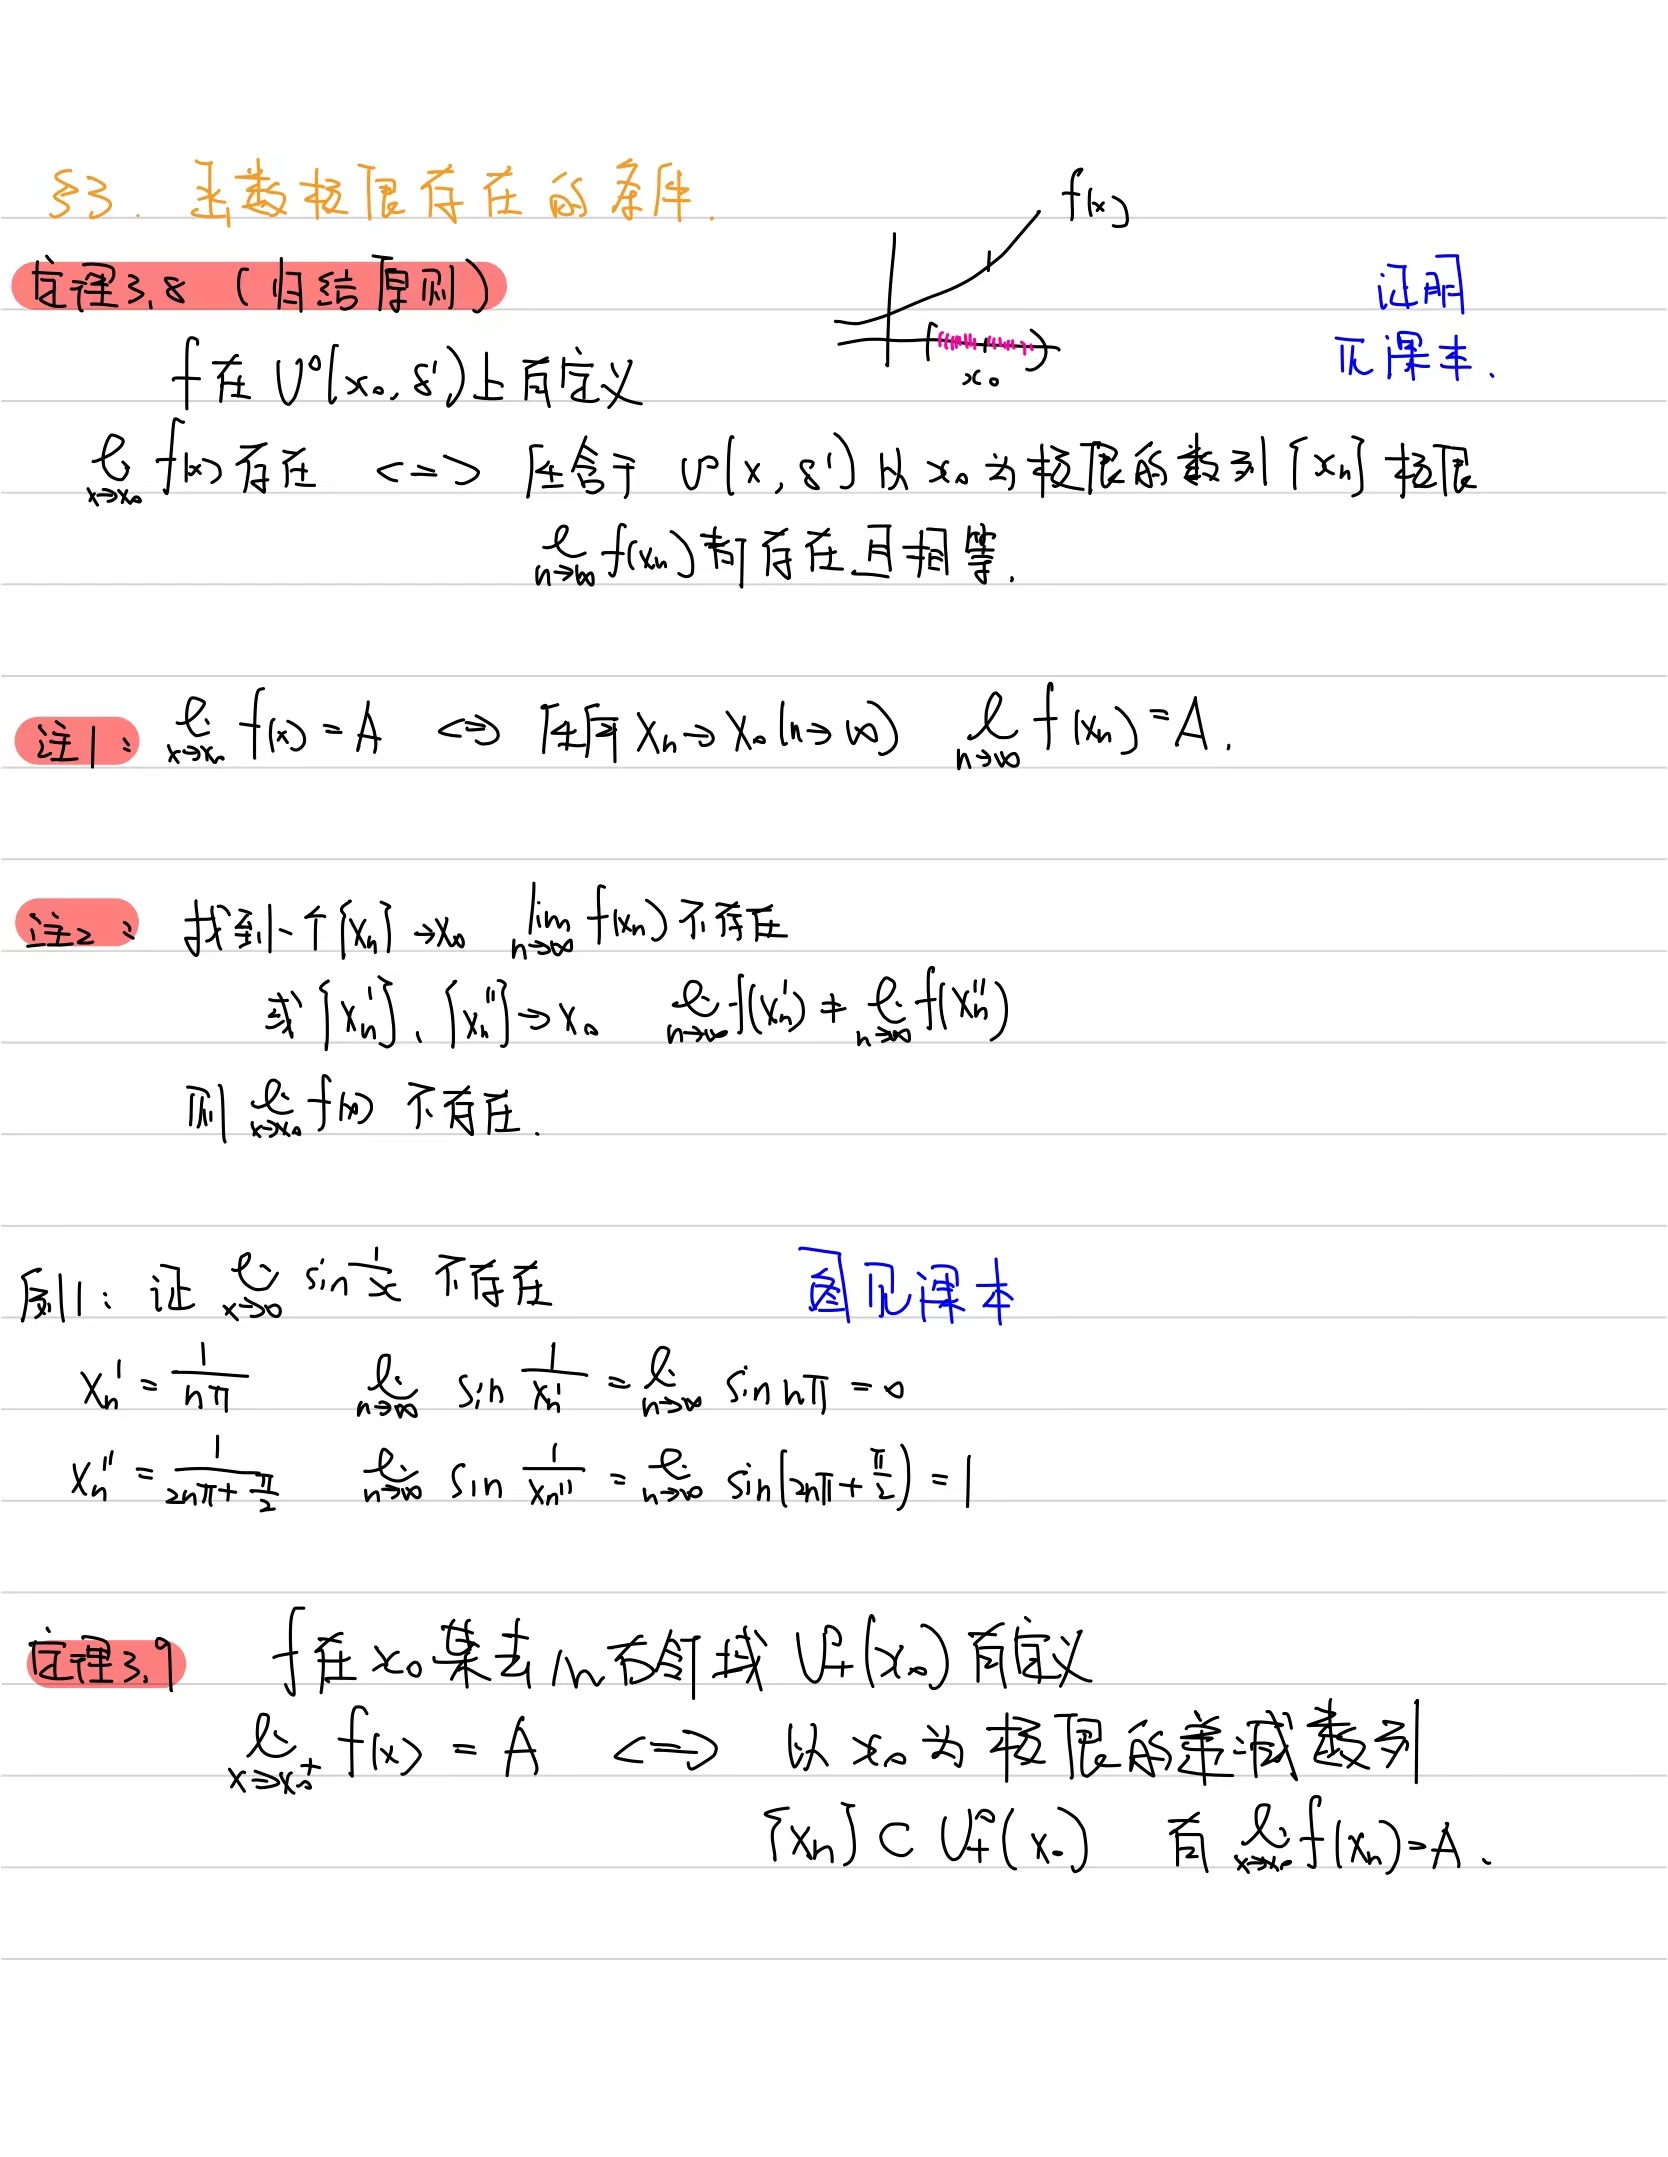 §3. 函数极限存在的条件.
f(x)
定理3.8 (归结原则)
证明
见课本.
x₀
f在 U°(x₀, δ')上有定义
lim x→x₀ f(x) 存在 <=> 任含于 U°(x, δ') 以 x₀ 为极限的数列 {xn} 极限
lim n→∞ f(xn) 都存在且相等.
注1: lim x→x₀ f(x) = A <=> 任何 xn→x₀ (n→∞) lim n→∞ f(xn) = A.
注2: 找到一个{xn}→x₀ lim n→∞ f(xn) 不存在
或 {xn'}、{xn''}→x₀ lim n→∞ f(xn') ≠ lim n→∞ f(xn'')
则 lim x→x₀ f(x) 不存在.
例1: 证 lim x→0 sin 1/x 不存在 图见课本
xn' = 1/nπ lim n→∞ sin 1/xn' = lim n→∞ sin nπ = 0
xn'' = 1/(2nπ+π/2) lim n→∞ sin 1/xn'' = lim n→∞ sin(2nπ+π/2) = 1
定理3.9 f在 x₀某去心右邻域 U°₊(x₀) 有定义
lim x→x₀⁺ f(x) = A <=> 以 x₀ 为极限的递减数列
{xn} ⊂ U°₊(x₀) 有 lim x→x₀ f(xn) = A.